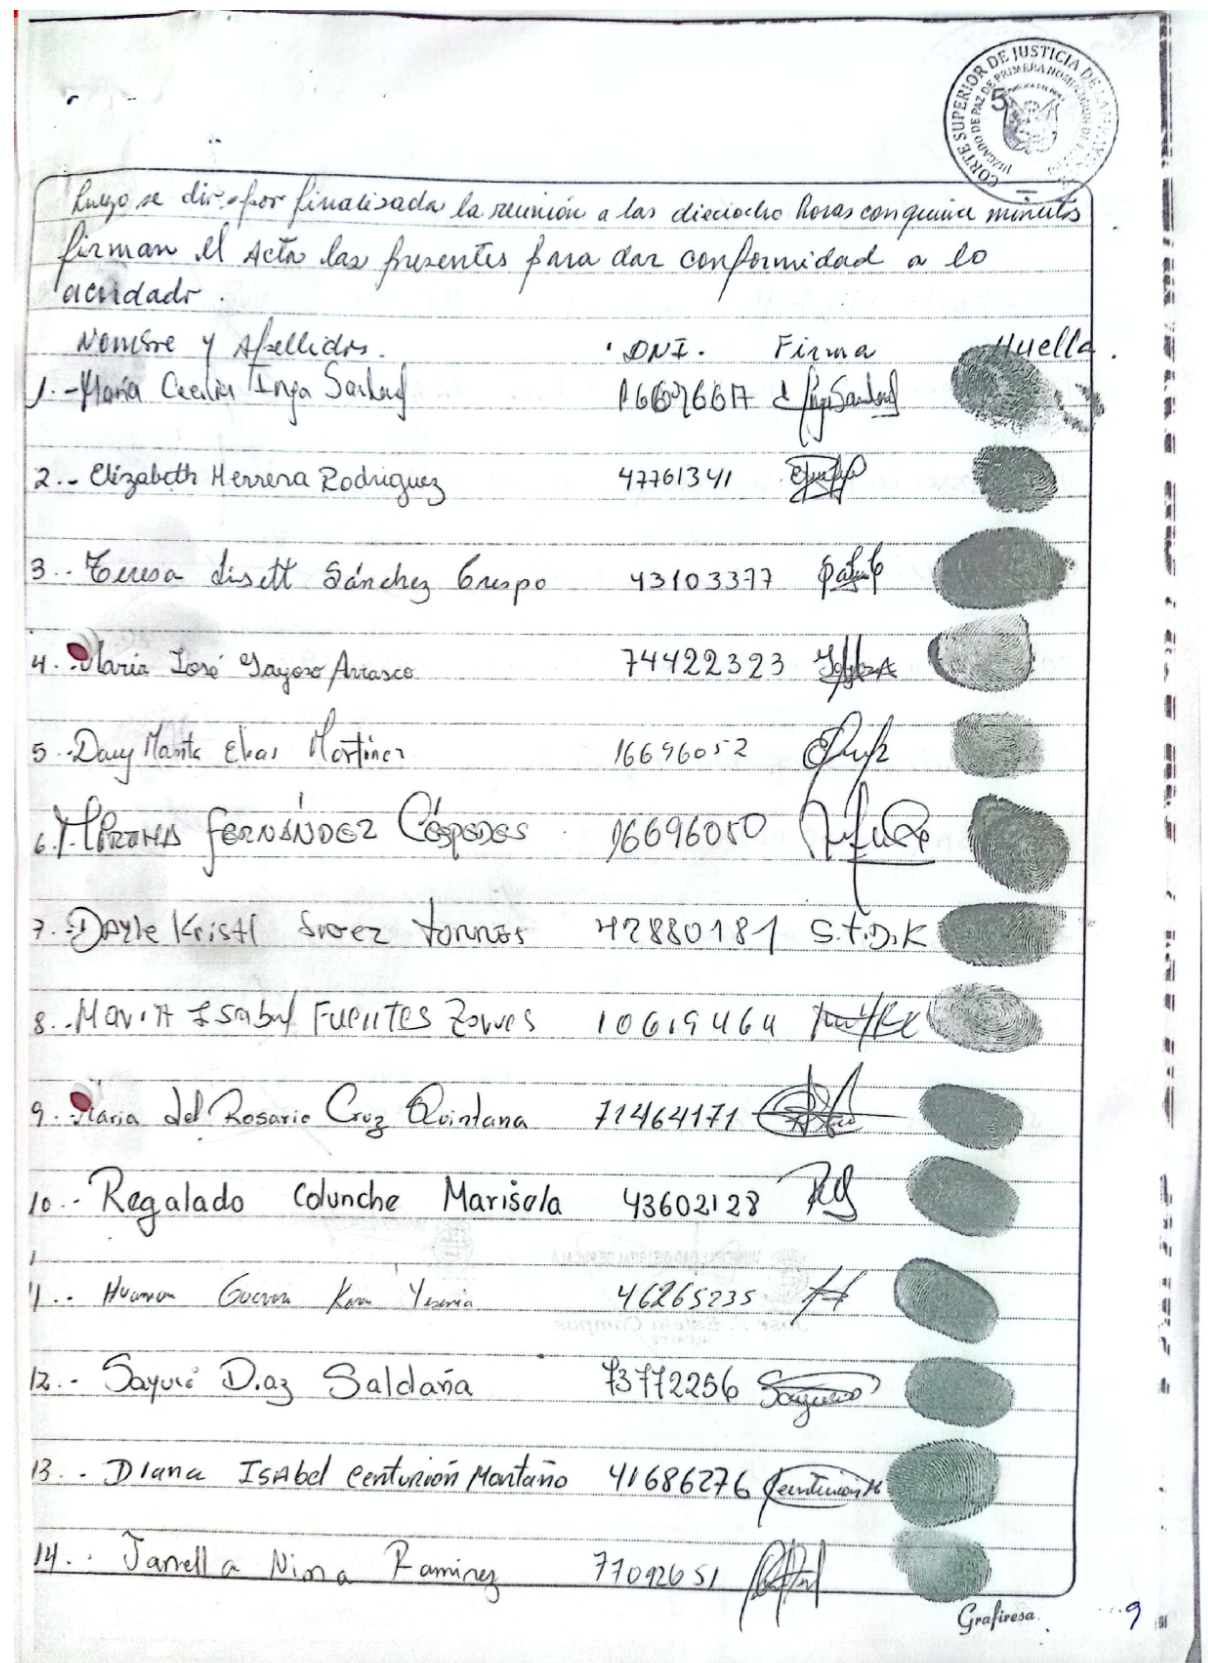 CORTE SUPERIOR DE JUSTICIA DE LAMBAYEQUE
JUZGADO DE PAZ DE PRIMERA NOMINACION DE
5
Luego se dio por finalizada la reunión a las dieciocho horas con quince minutos
firman el Acta las presentes para dar conformidad a lo
acordado.
Nombre y Apellidos. DNI. Firma Huella.
1.- María Cecilia Inga Sandoval
2.- Elizabeth Herrera Rodriguez 47761341
3.- Teresa Lisett Sánchez Crespo 43103377
4.- Maria José Gayoso Arrasco 74422323
5.- Dany Marita Elias Martinez 16696052
6.- MIRTHA FERNÁNDEZ CÉSPEDES 16696050
7.- Dayle Kristl Suarez Torres 42880181 S.T.D.K
8.- Maria Isabel FUENTES Torres 10619464
9.- Maria del Rosario Cruz Quintana 71464171
10.- Regalado Colunche Marisela 43602128
11.- Huaman Guevara Karen Yesenia 46265235
12.- Sayuri Diaz Saldaña 73772256
13.- Diana ISAbel Centurión Montaño 41686276
14.- Jarella Nima Ramirez 77092651
Grafiresa
9